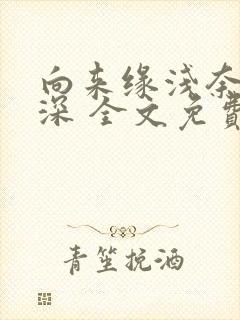 向来缘浅奈
深 全文免費
青笙挽酒